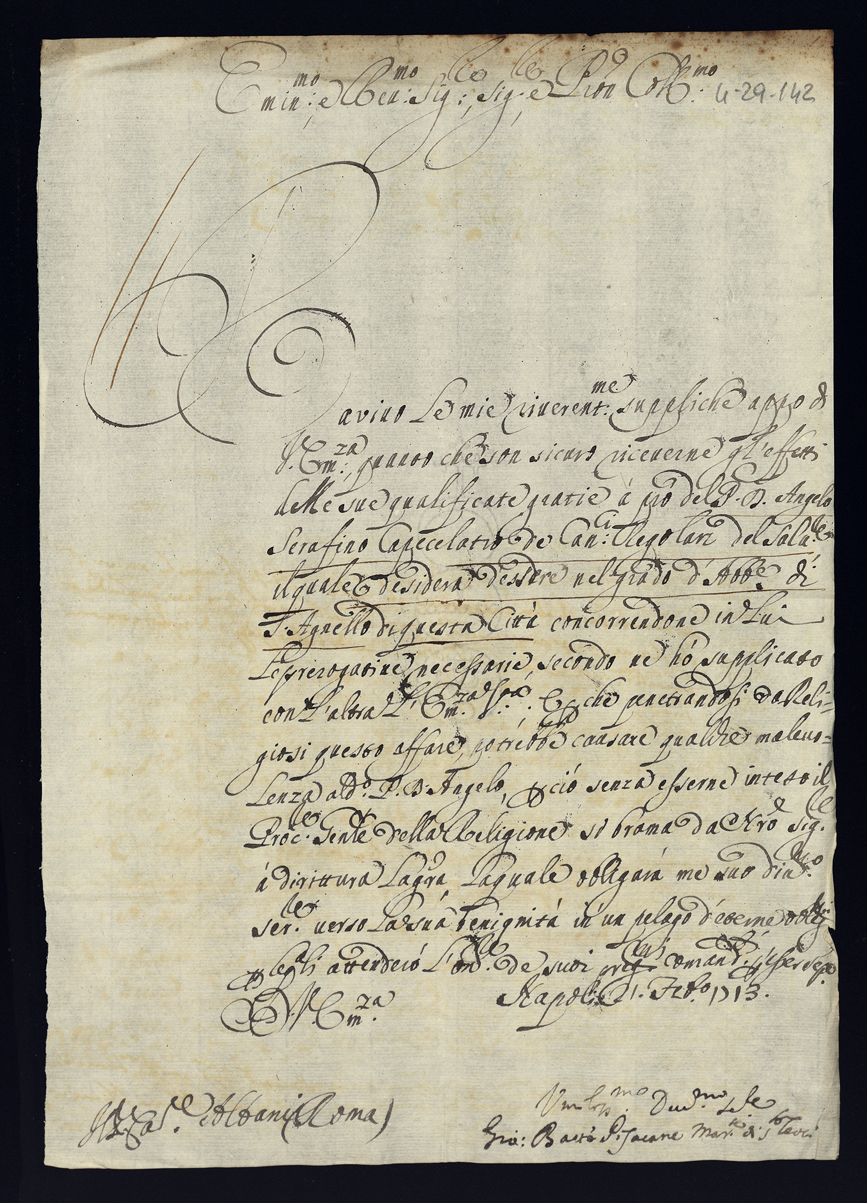 Emin:mo e Rev:mo Sig:re, Sig:re e Pron Coll:mo 4-29-142
avivo Le mie riverent:me suppliche appo di
V. Em:za, quanto che son sicuro riceverne gl'effetti
delle sue qualificate gratie à prò del P. D. Angelo
Serafino Capecelatro de Can:ci Regolari del Salv:re
il quale desidera d'essere nel grado d'Abbe di
S. Agnello di questa Città concorrendone in Lui
Le prerogative necessarie, secondo ne hò supplicato
con L'altra L'Em:za Sua. E che penetrandosi da Reli=
giosi questo affare, potrebbe causare qualche malevo=
Lenza al do. P. D. Angelo, perciò senza esserne inteso il
Proc:re Gen:le della Religione si brama da Nro Sig:re
à dirittura La gra, La quale obligarà me suo div:mo
ser:re verso La sua benignità in un pelago d'eterne oblig:ni
attendo L'on:re de suoi comand:i
Napoli 21. Feb:o 1713.
D. V. Em:za
Albani (Roma)
Umiliss:mo Dev:mo
Gio: Batta Mar:se di